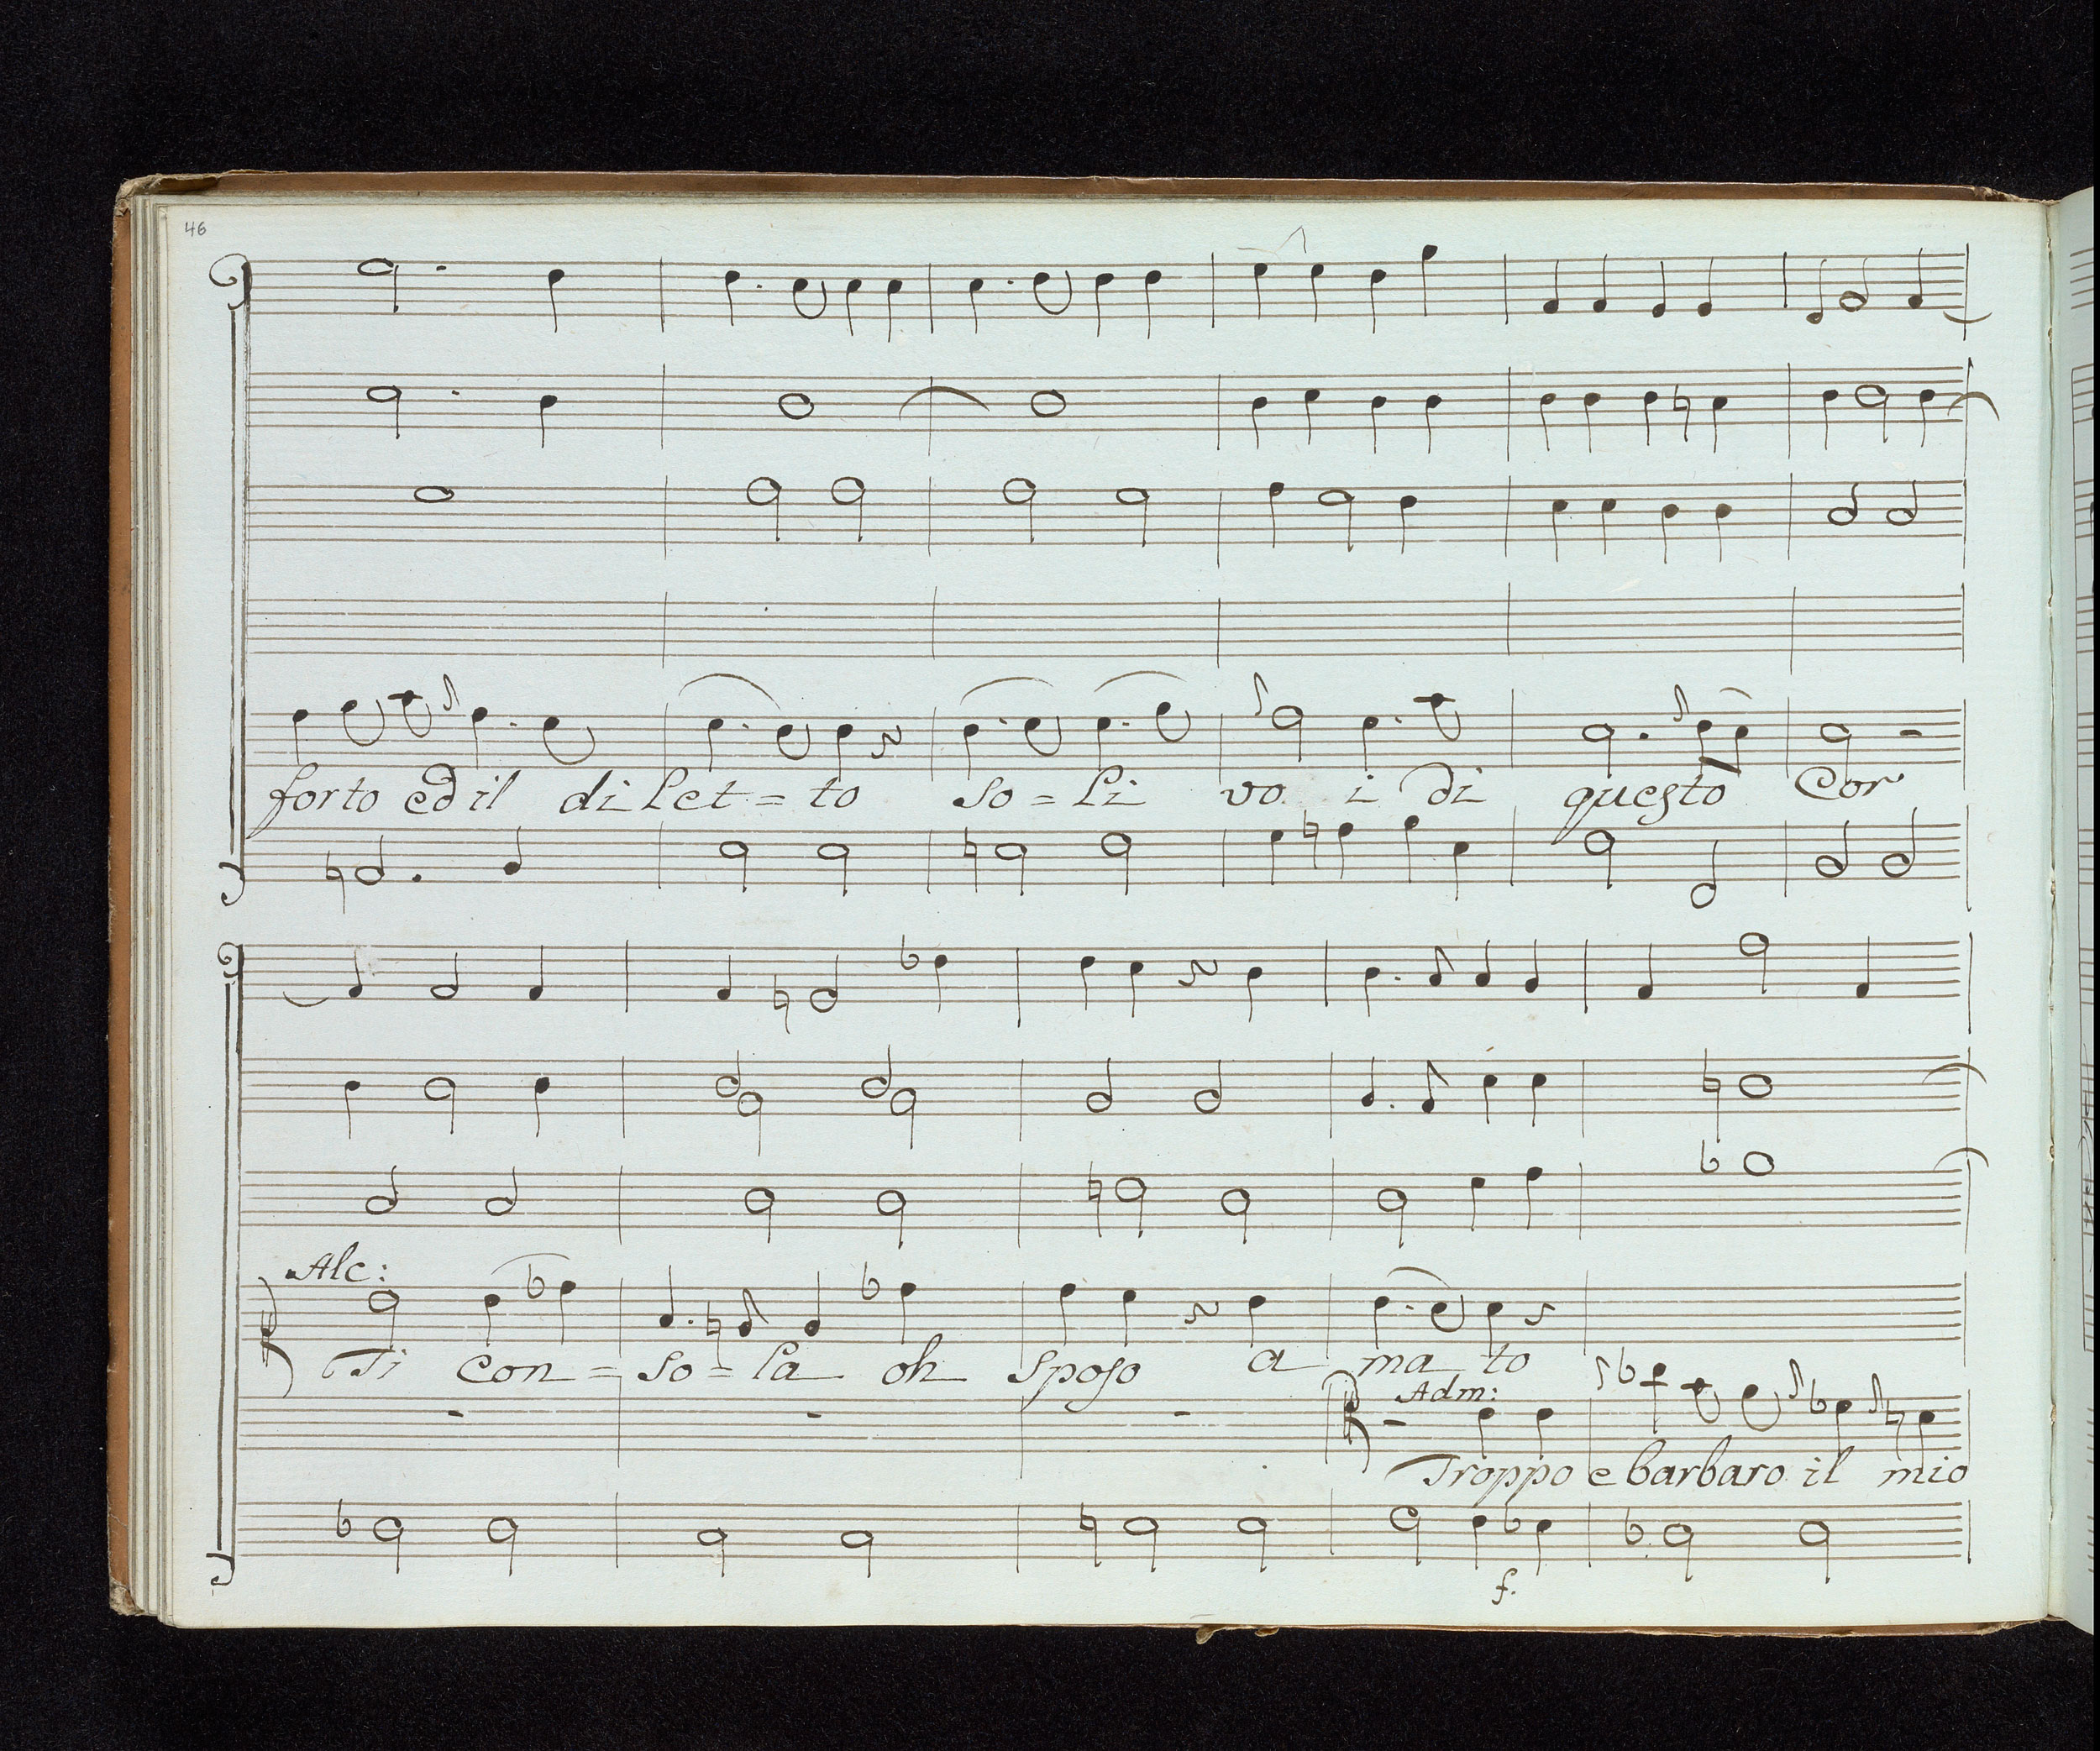 46
forto ed il di let = to so = li vo i di questo Cor
Alc:
Ti con = so = la oh sposo a ma to
Adm:
Troppo e barbaro il mio
f.